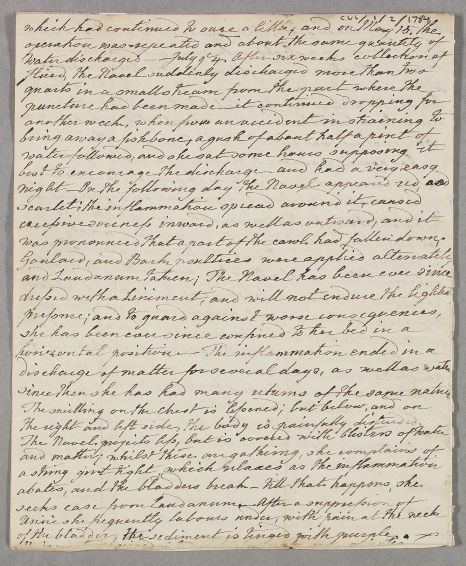 CUL/1/2/1784
which had continued to ouze a little, and on May 15. the
operation was repeated and about the same quantity of
Water discharged - July 9th After six weeks collection of
fluid, the Navel suddenly discharged more than two
quarts in a small stream from the part where the
puncture had been made - it continued dropping for
another week, when from an accident in straining to
bring away a fishbone, a gush of about half a pint of
water followed, and she sat some hours supposing it
best to encourage the discharge - and had a very easy
night - On the following day the Navel appeared red as
scarlet; the inflammation spread around it, caused
excessive soreness inward, as well as outward, and it
was pronounced that a part of the caul had fallen down.
Goulard, and Bark poultices were applied alternately
and Laudanum taken; The Navel has been ever since
dress'd with a Liniment, and will not endure the lightest
Pressure; and to guard against worse consequences,
she has been ever since confined to her bed in a
horizontal position - The inflammation ended in a
discharge of matter for several days, as well as water
since then she has had many returns of the same nature
The swelling on the chest is lessened; but below, and on
the right and left side, the body is painfully distended,
The Navel projects less, but is covered with blisters of water
and matter; whilst these are gathering she complains of
a string girt tight, which relaxes as the inflammation
abates, and the bladders break - till that happens she
seeks ease from Laudanum - After a suppression of
Urine she frequently labours under, with pain at the neck
of the bladder, the sediment is tinged with purple -